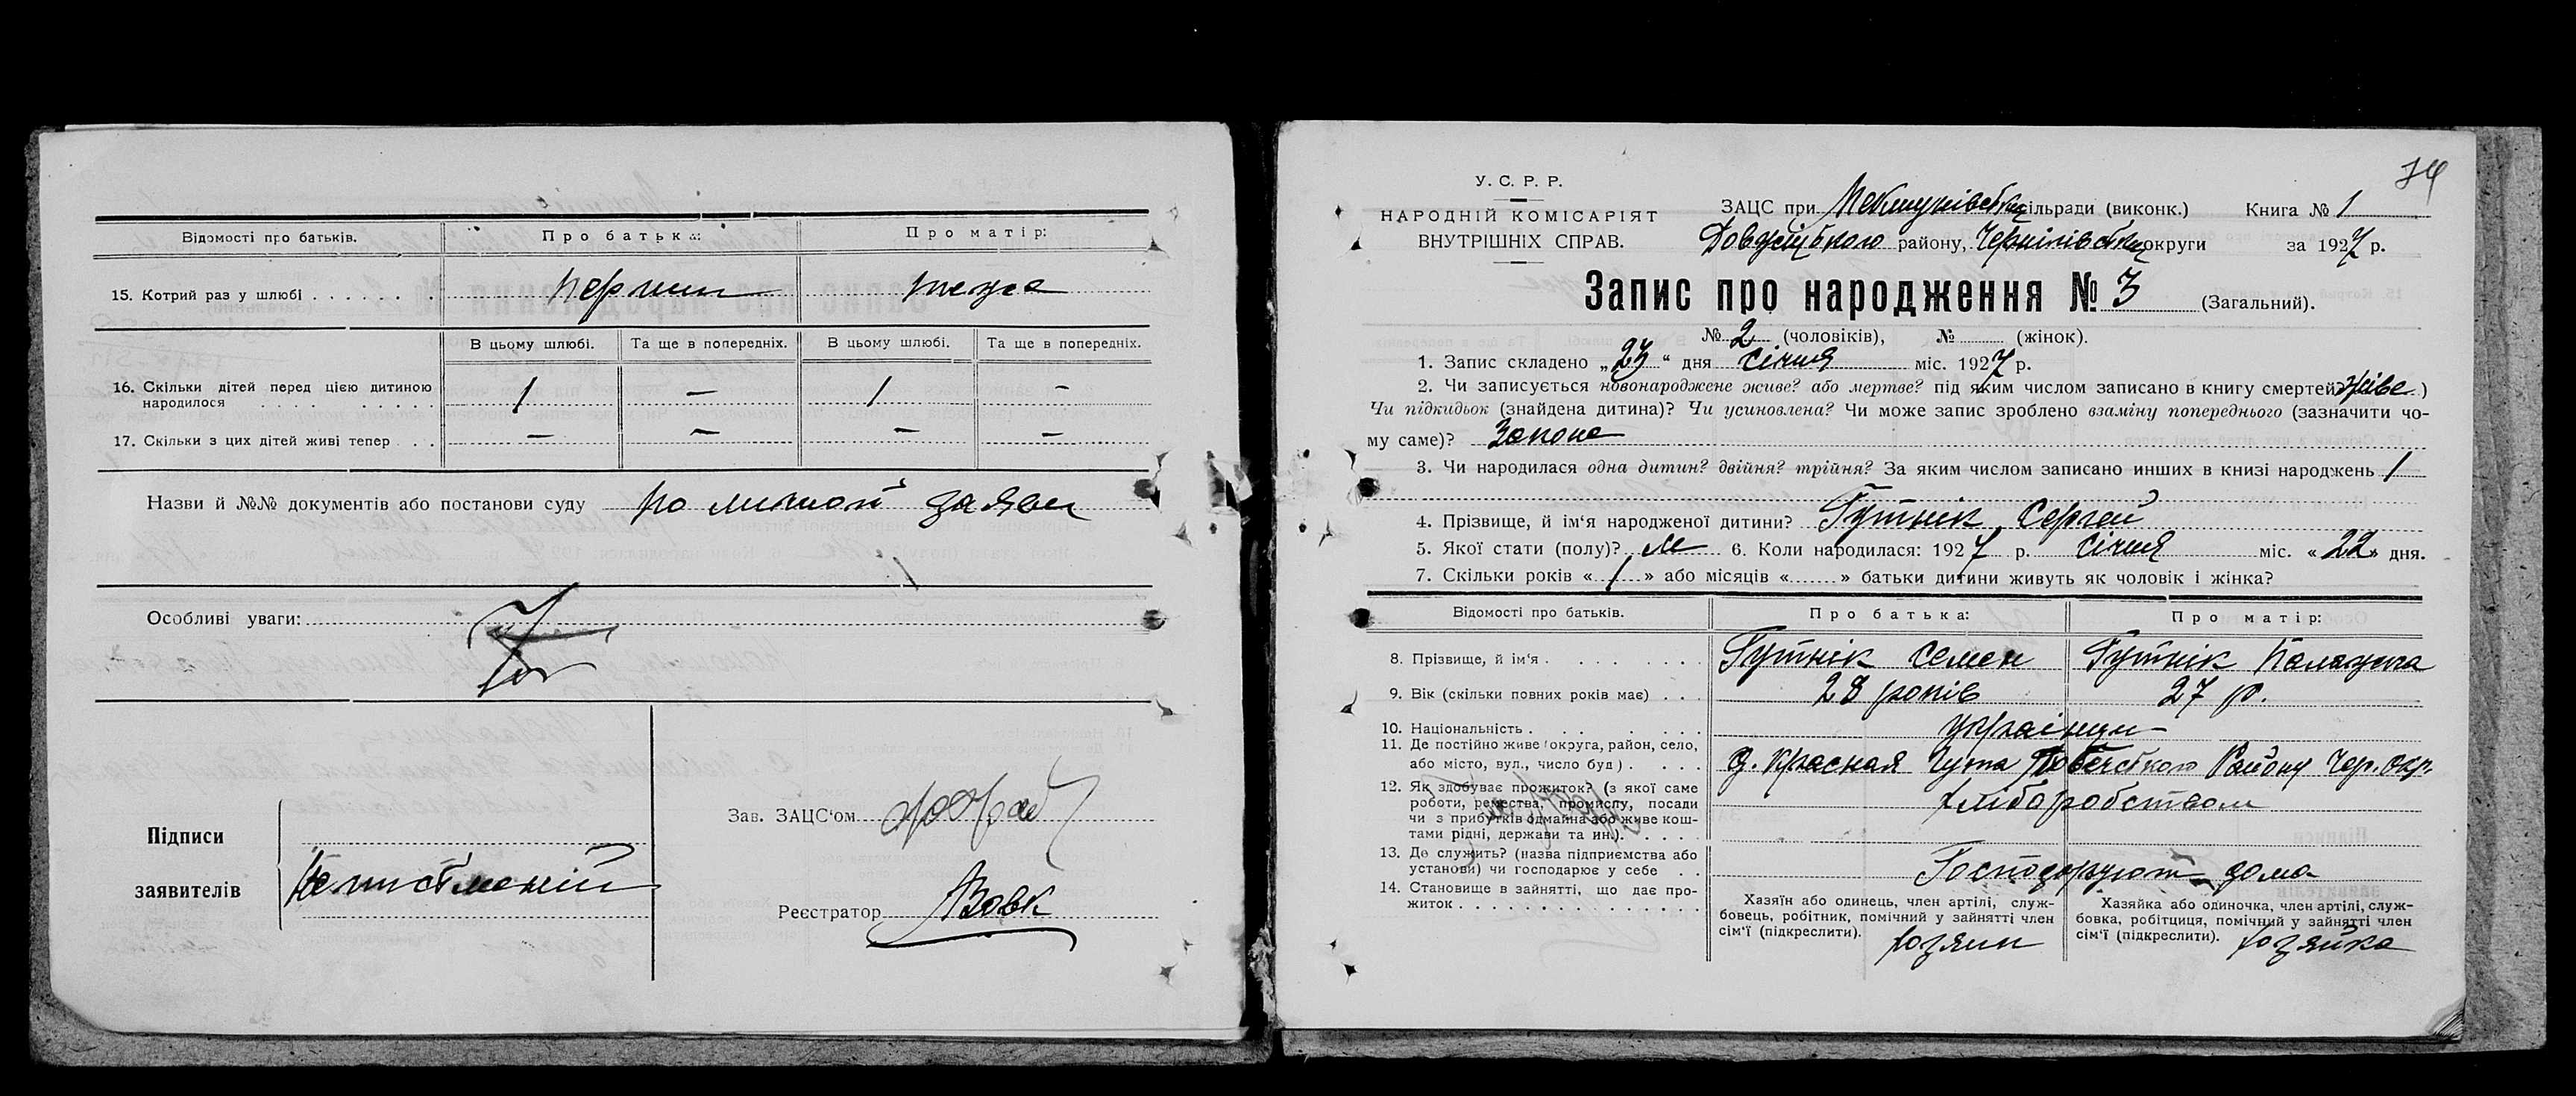 Відомості про батьків.
Про батька:
Про матір:
15. Котрий раз у шлюбі
перший
тоже
В цьому шлюбі.
Та ще в попередніх.
В цьому шлюбі.
Та ще в попередніх.
16. Скільки дітей перед цією дитиною
народилося
1
—
1
—
17. Скільки з цих дітей живі тепер
—
—
—
—
Назви й №№ документів або постанови суду по личной заяви
Особливі уваги:
Підписи
заявителів
Зав. ЗАЦС'ом
Реєстратор Вовк
74
У. С. Р. Р.
НАРОДНІЙ КОМІСАРІЯТ
ВНУТРІШНІХ СПРАВ.
ЗАЦС при сільради (виконк.)
Книга № 1
району, Чернігівської округи
за 1927 р.
Запис про народження № 3 (Загальний).
№ 2 (чоловіків), № (жінок).
1. Запис складено „23“ дня січня міс. 1927 р.
2. Чи записується новонароджене живе? або мертве? під яким числом записано в книгу смертей? живе)
Чи підкидьок (знайдена дитина)? Чи усиновлена? Чи може запис зроблено взаміну попереднього (зазначити чо-
му саме)?
3. Чи народилася одна дитин? двійня? трійня? За яким числом записано инших в книзі народжень 1
4. Прізвище, й ім'я народженої дитини? Гутнік Сергей
5. Якої стати (полу)? М 6. Коли народилася: 1927 р. січня міс. «22» дня.
7. Скільки років «1» або місяців «» батьки дитини живуть як чоловік і жінка?
Відомості про батьків.
Про батька:
Про матір:
8. Прізвище, й ім'я
Гутнік Семен
Гутнік Палажка
9. Вік (скільки повних років має)
28 років
27 р.
10. Національність
українци
11. Де постійно живе (округа, район, село,
або місто, вул., число буд)
д. Красная Гута Району Чер. окр.
12. Як здобуває прожиток? (з якої саме
роботи, ремества, промислу, посади
чи з прибутків одмайна або живе кош-
тами рідні, держави та ин.).
хліборобством
13. Де служить? (назва підприємства або
установи) чи господарює у себе
Господорують дома
14. Становище в зайнятті, що дає про-
житок
Хазяїн або одинець, член артілі, служ-
бовець, робітник, помічний у зайнятті член
сім'ї (підкреслити).
хозяин
Хазяйка або одиночка, член артілі, служ-
бовка, робітциця, помічний у зайнятті член
сім'ї (підкреслити).
хозяйка